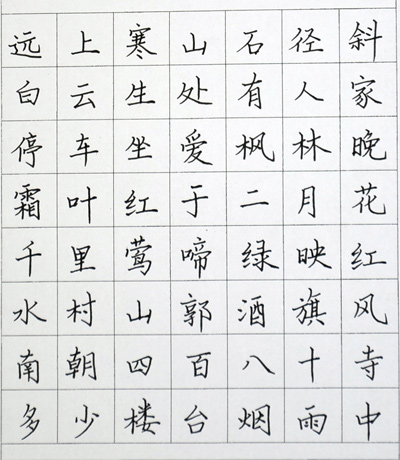 远上寒山石径斜
白云生处有人家
停车坐爱枫林晚
霜叶红于二月花
千里莺啼绿映红
水村山郭酒旗风
南朝四百八十寺
多少楼台烟雨中